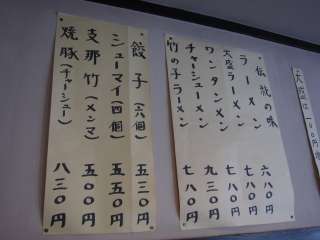 大盛は100円
伝説の味
ラーメン 六八〇円
大盛ラーメン 七八〇円
ワンタンメン 七八〇円
チャーシューメン 九三〇円
竹の子ラーメン 七八〇円
餃子(六個) 五三〇円
シューマイ(四個) 五五〇円
支那竹(メンマ) 五〇〇円
焼豚(チャーシュー) 八三〇円